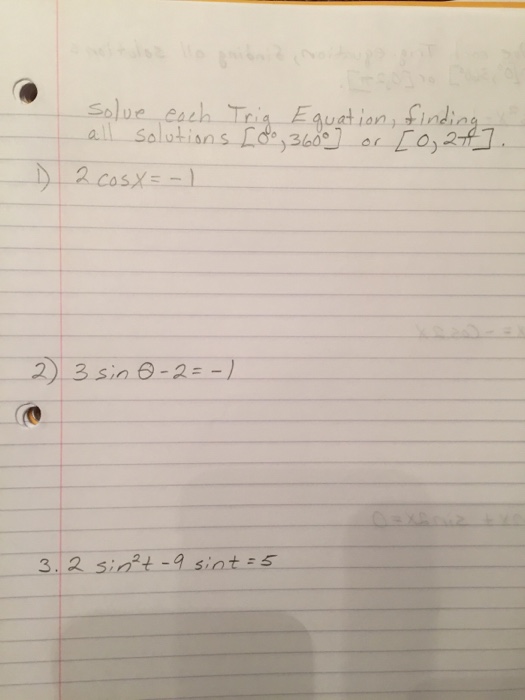 Solve each Trig Equation, finding
all solutions [0°, 360°] or [0, 2π].
1) 2 cosx = -1
2) 3 sin θ - 2 = -1
3. 2 sin²t - 9 sint = 5